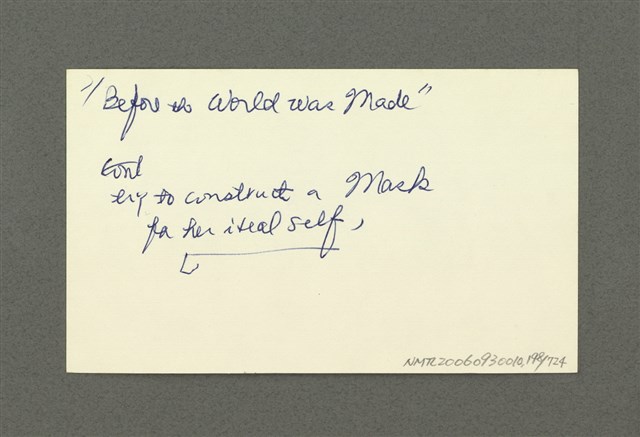 "Before the World was Made"
try to construct a Mask
for her ideal self,
NMTL20060930010,198/724